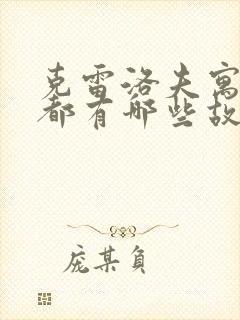 克雷洛夫寓
都有哪些故
庞某负